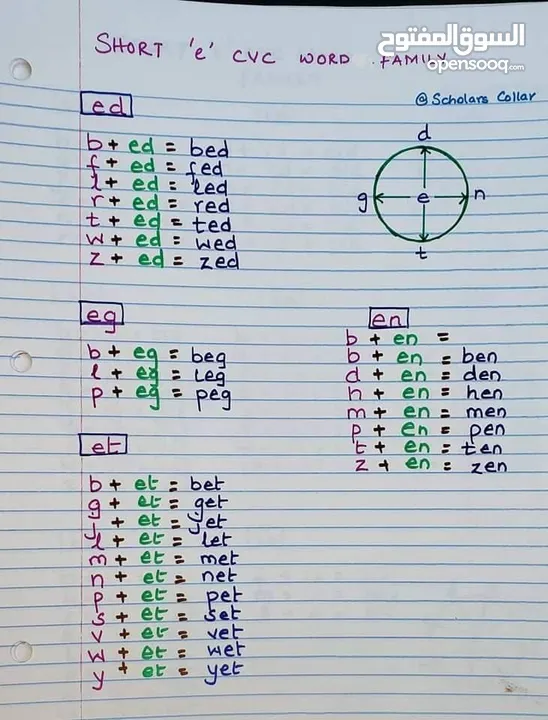 SHORT 'e' CVC WORD FAMILY
السوق المفتوح
opensooq.com
@Scholars Collar
ed
b + ed = bed
f + ed = fed
l + ed = led
r + ed = red
t + ed = ted
w + ed = wed
z + ed = zed
d
g e n
t
eg
b + eg = beg
l + eg = leg
p + eg = peg
en
b + en =
b + en = ben
d + en = den
h + en = hen
m + en = men
p + en = pen
t + en = ten
z + en = zen
et
b + et = bet
g + et = get
j + et = jet
l + et = let
m + et = met
n + et = net
p + et = pet
s + et = set
v + et = vet
w + et = wet
y + et = yet